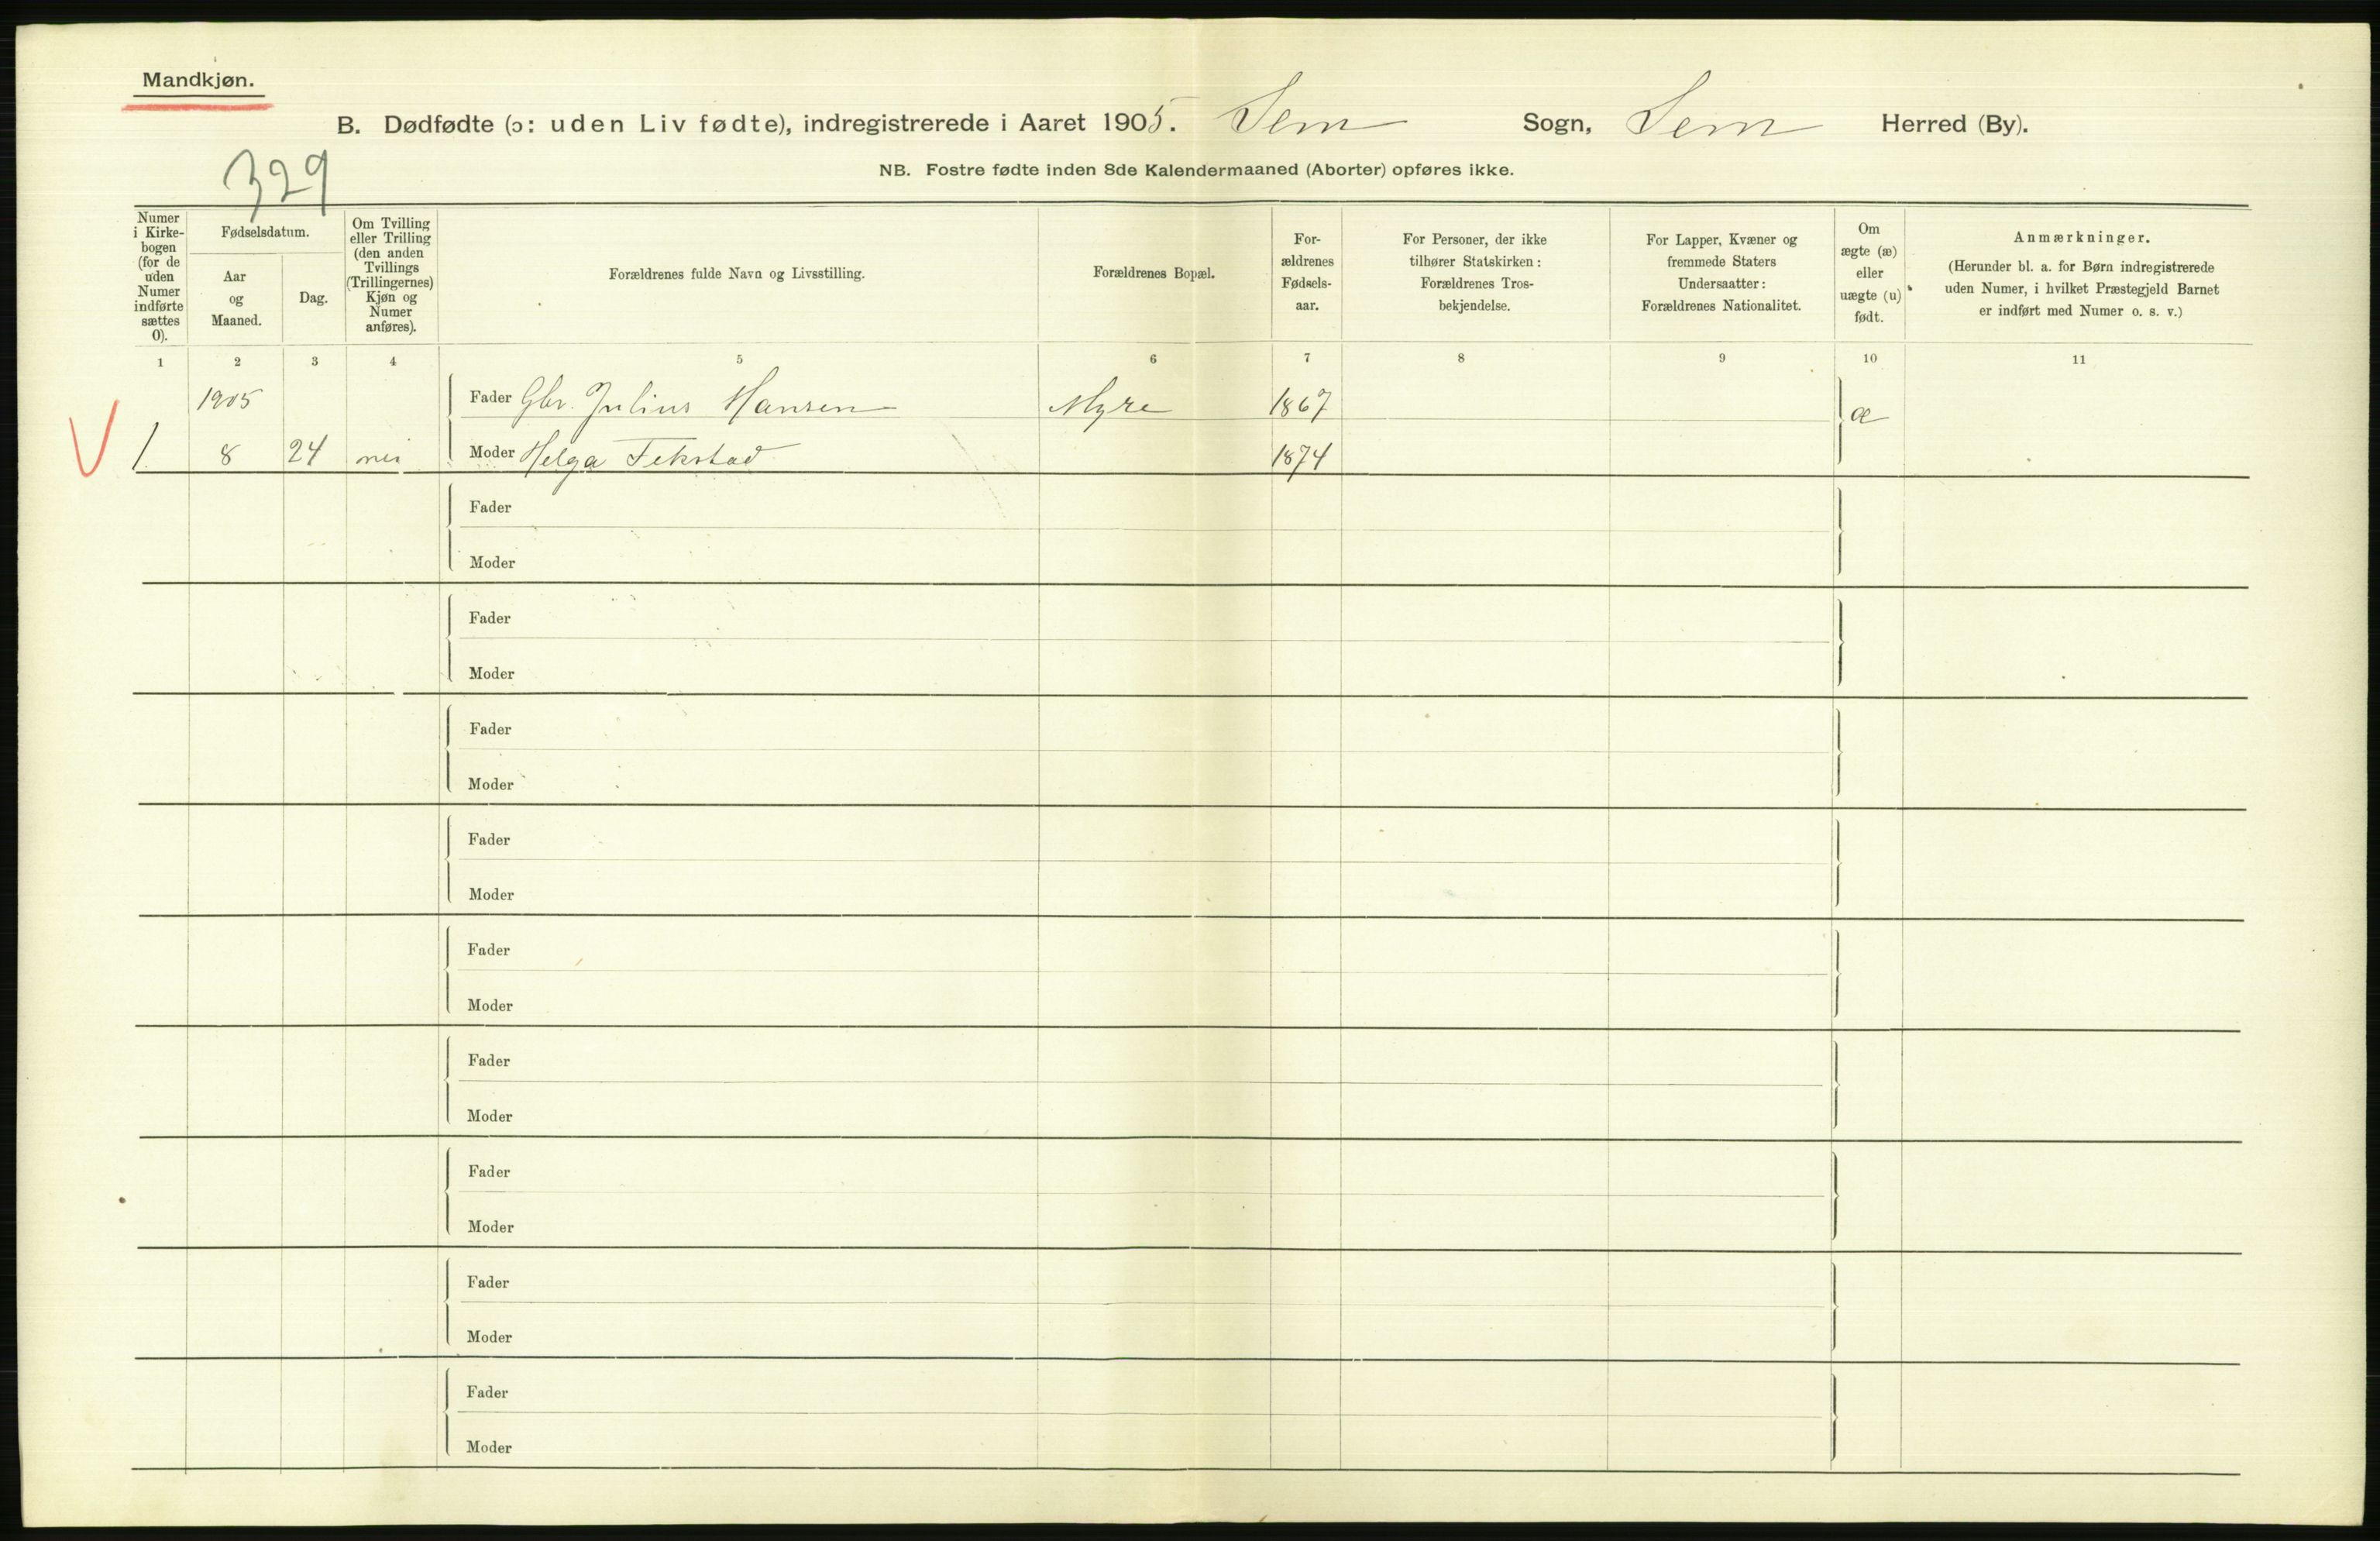 Mandkjøn.
B. Dødfødte (ɔ: uden Liv fødte), indregistrerede i Aaret 1905. Sem Sogn, Sem Herred (By).
329
NB. Fostre fødte inden 8de Kalendermaaned (Aborter) opføres ikke.
Numer
i Kirke-
bogen
(for de
uden
Numer
indførte
sættes
0).
Fødselsdatum.
Aar
og
Maaned.
Dag.
Om Tvilling
eller Trilling
(den anden
Tvillings
(Trillingernes)
Kjøn og
Numer
anføres).
Forældrenes fulde Navn og Livsstilling.
Forældrenes Bopæl.
For-
ældrenes
Fødsels-
aar.
For Personer, der ikke
tilhører Statskirken:
Forældrenes Tros-
bekjendelse.
For Lapper, Kvæner og
fremmede Staters
Undersaatter:
Forældrenes Nationalitet.
Om
ægte (æ)
eller
uægte (u)
født.
Anmærkninger.
(Herunder bl. a. for Børn indregistrerede
uden Numer, i hvilket Præstegjeld Barnet
er indført med Numer o. s. v.)
1 2 3 4 5 6 7 8 9 10 11
1905 Fader Gbr. Julius Hansen Myre 1867 æ
1. 8 24 nei Moder Helga Tekstad 1874
Fader
Moder
Fader
Moder
Fader
Moder
Fader
Moder
Fader
Moder
Fader
Moder
Fader
Moder
Fader
Moder
Fader
Moder